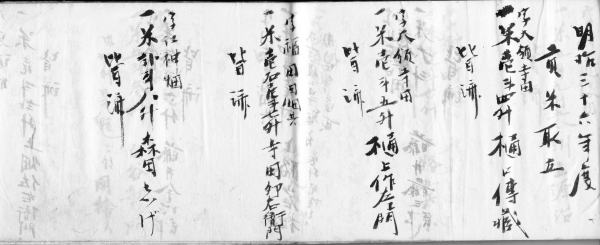 明治三十六年度
貢米取立
字大領寺田
一米壱斗四升 樋口傳蔵
皆済
字大領寺田
一米壱斗五升 樋上作左エ門
皆済
字稲田
一米壱石 寺田卯右衛門
皆済
字江柑畑
一米弐斗八升 森田しげ
皆済